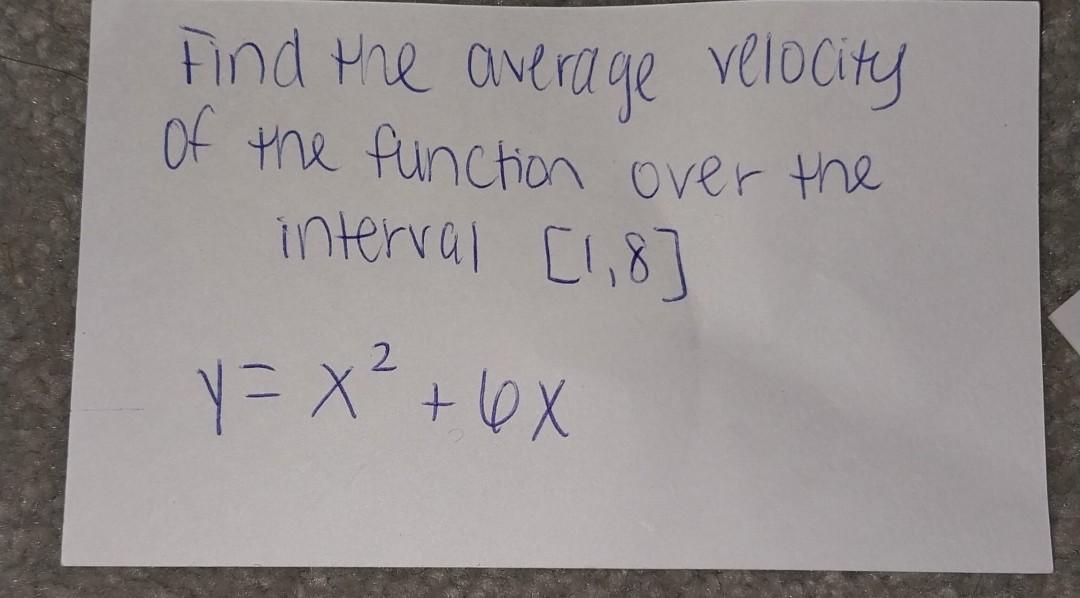 Find the average velocity
of the function over the
interval [1,8]
y = x² + 6x